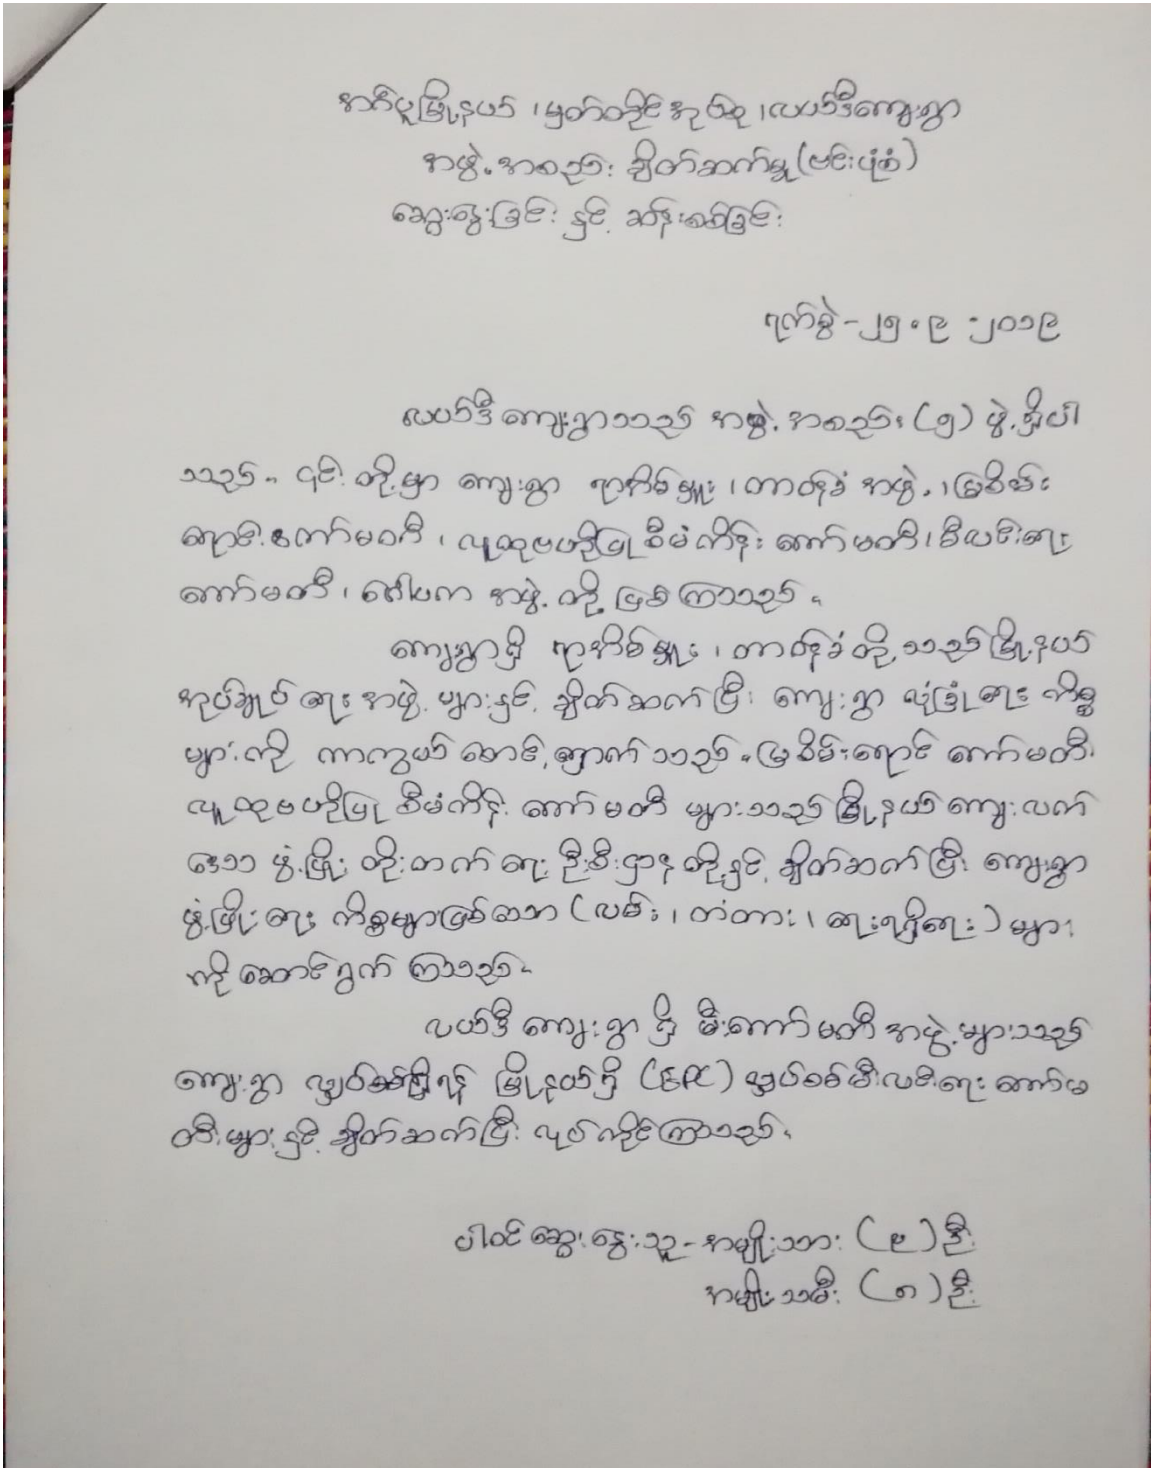 အင်္ဂပူမြို့နယ် ၊ မှတ်တိုင်အုပ်စု ၊ လယ်ဒီကျေးရွာ
အဖွဲ့အစည်း ချိတ်ဆက်မှု (ဗင်းပုံစံ)
ဆွေးနွေးခြင်း နှင့် ဆန်းစစ်ခြင်း
ရက်စွဲ - ၂၅.၉.၂၀၁၉
လယ်ဒီ ကျေးရွာသည် အဖွဲ့အစည်း (၅) ဖွဲ့ ရှိပါ
သည်။ ၎င်းတို့မှာ ကျေးရွာ ရာအိမ်မှူး ၊ တာဝန်ခံ အဖွဲ့ ၊ မြစိမ်း
ရောင် ကော်မတီ ၊ လူထုဗဟိုပြု စီမံကိန်း ကော်မတီ ၊ မီးလင်းရေး
ကော်မတီ ၊ ဂေါပက အဖွဲ့ တို့ ဖြစ်ကြသည်။
ကျေးရွာရှိ ရာအိမ်မှူး ၊ တာဝန်ခံ တို့သည် မြို့နယ်
အုပ်ချုပ်ရေး အဖွဲ့ များနှင့် ချိတ်ဆက်ပြီး ကျေးရွာ လုံခြုံရေး ကိစ္စ
များကို ကာကွယ် စောင့်ရှောက် သည်။ မြစိမ်းရောင် ကော်မတီ၊
လူထုဗဟိုပြု စီမံကိန်း ကော်မတီ များသည် မြို့နယ် ကျေးလက်
ဒေသ ဖွံ့ဖြိုး တိုးတက်ရေး ဦးစီးဌာန တို့နှင့် ချိတ်ဆက်ပြီး ကျေးရွာ
ဖွံ့ဖြိုးရေး ကိစ္စများဖြစ်သော (လမ်း ၊ တံတား ၊ ရေးရရှိရေး) များ
ကို ဆောင်ရွက် ကြသည်။
လယ်ဒီ ကျေးရွာ ရှိ မီးကော်မတီ အဖွဲ့များသည်
ကျေးရွာ လျှပ်စစ်မီးရရန် မြို့နယ်ရှိ (EPC) လျှပ်စစ်မီးလင်းရေး ကော်မ
တီများနှင့် ချိတ်ဆက်ပြီး လုပ်ကိုင်ကြသည်။
ပါဝင်ဆွေးနွေးသူ - အမျိုးသား (၉) ဦး
အမျိုးသမီး (၈) ဦး